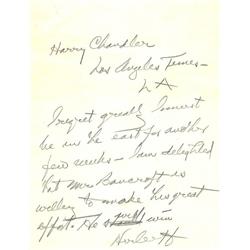 Harry Chandler
Los Angeles Times -
LA
I regret greatly I must
be in the east for another
few weeks - I am delighted
that Mr Bancroft is
willing to make his great
effort. He will win
Hoover